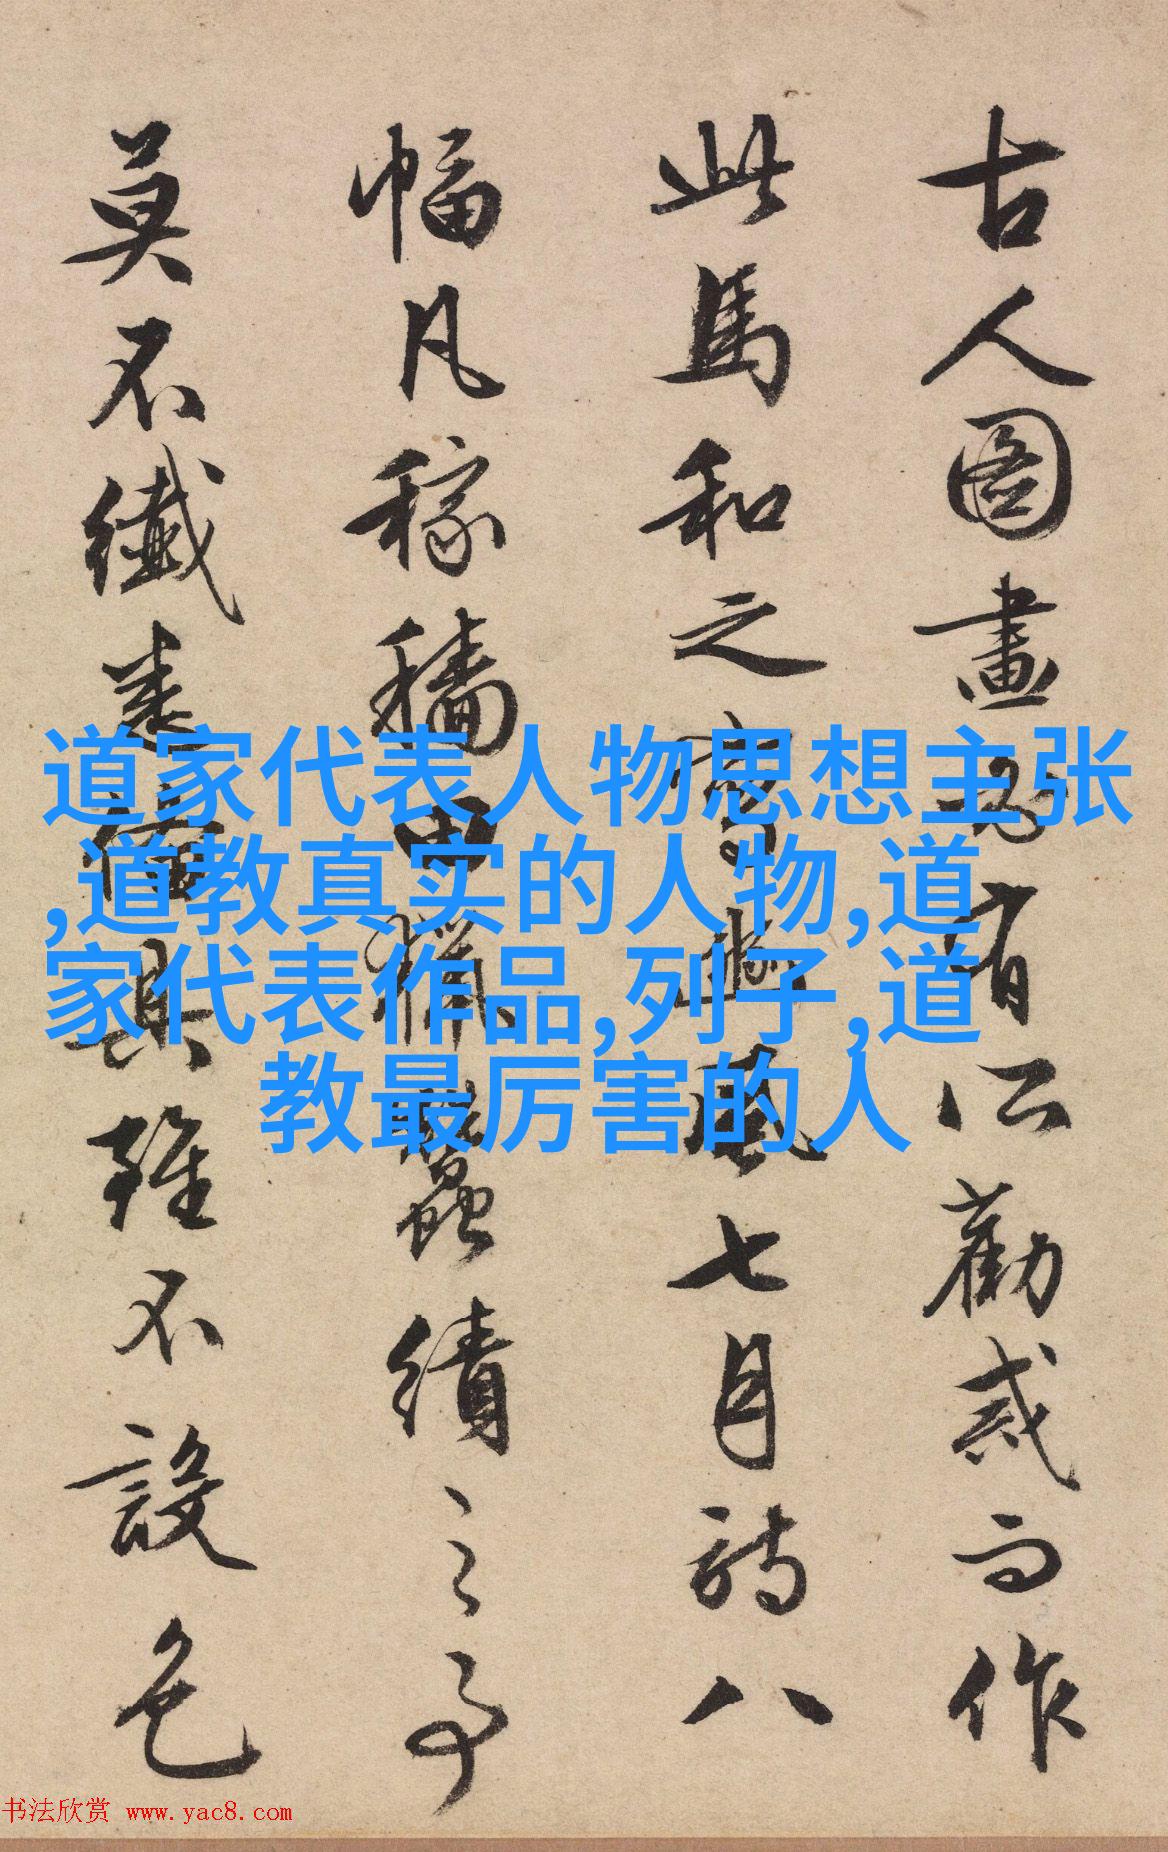 古人圖畫必有所勸戒而作
此馬和之寫豳風七月詩八
幅凡稼穡田獵蠶績之事
莫不纖悉備具雖不設色
道家代表人物思想主张
,道教真实的人物,道
家代表作品,列子,道
教最厉害的人
书法欣赏 www.yac8.com